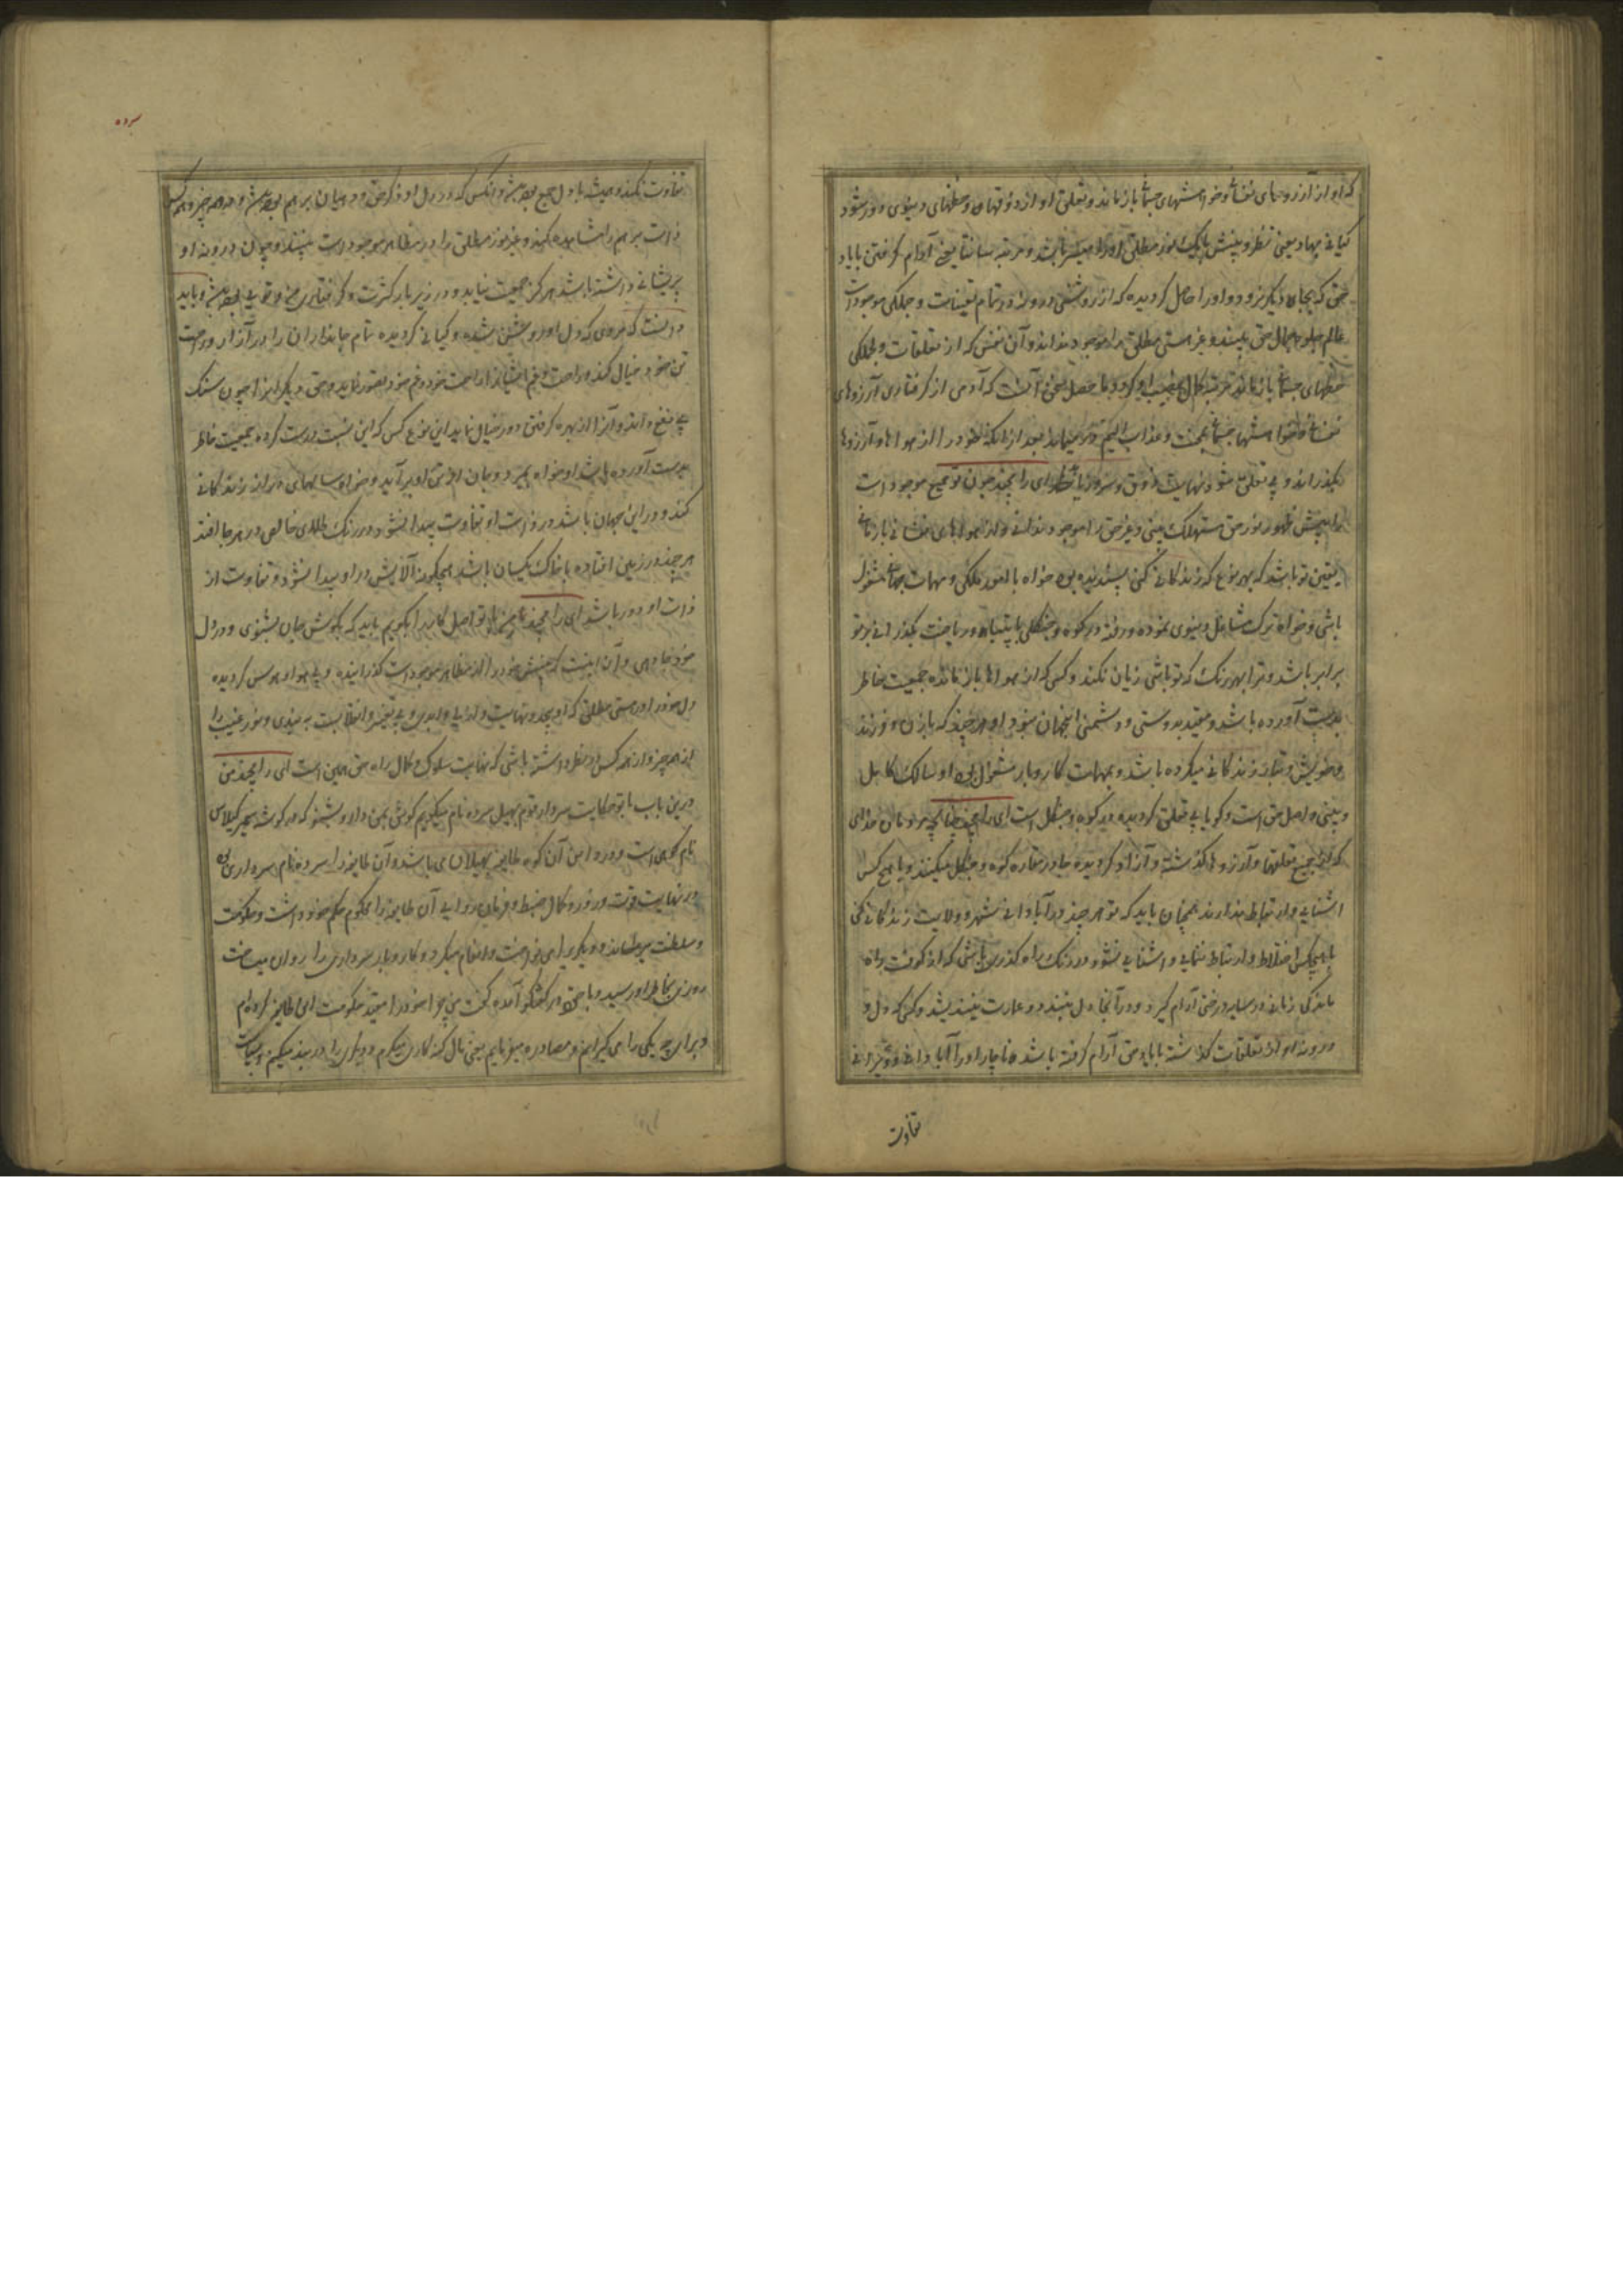 که او از آرزوهای نفسانی و خواهشهای جسمانی باز ماند و تعلق او از ذوقهای و حظهای دنیوی دور شود
کیانی مهادیعنی نظر و بینش یک نور مطلق او را میسر باشد و مرتبه سانتا یعنی آرام گرفتن بایاد
حق که بجای دیگر نرود او را حاصل گردیده که از روشنی درون در تمام تعینات و جملگی موجودات
عالم جلوه جمال حق بیند و غیر هستی مطلق را موجود نداند و آن شخص که از تعلقات و جملگی
حظهای جسمانی باز ماند مرتبه کمال نصیب او گردد ما حصل سخن آنست که آدمی از گرفتاری آرزوهای
نفسانی و خواهشهای جسمانی بمحنت و عذاب الیم میماند بعد از آنکه خود را از هواها و آرزوها
بگذراند و بی تعلق شود نهایت ذوق و سرور یابد ای رامچند چون تو جمیع موجودات
را پیش ظهور نور حق مستهلک بینی و غیر حق را موجود ندانی و از هواهای نفسانی باز مانی
یقین تو باشد که بهر نوع که زندگانی کنی پسندیده بود خواه بامور ملکی و مهمات جهانی مشغول
باشی و خواه ترک مشاغل دنیوی نموده و رفته در کوه و جنگل با پتیاه و ریاضت بگذرانی بر تو
برابر باشد و ترا بهر رنگ که تو باشی زیان نکند و کسی که از هواها باز مانده جمعیت خاطر
بدست آورده باشد و مقید بدوستی و دشمنی اینجهان نبود او هر چند که با زن و فرزند
و خویش و تبار زندگانی میکرده باشد و بمهمات کار و بار مشغول بود او سالک کامل
و بینی و اصل حق است و گویا بی تعلق گردیده در کوه و جنگل است ای رامچند چنانچه مردمان خدای
که از جمیع تعلقها و آرزوها گذشته و آزاد گردیده جا در مغاره کوه و جنگل میکنند و با هیچ کس
آشنایی و ارتباط ندارند همچنان باید که تو هر چند در آبادانی شهر و ولایت زندگانی کنی
با هیچکس اختلاط و ارتباط ننمایی و آشنایی نشود و در رنگ راه گذری باشی که از کوفت راه
ماندگی زمانی در سایه درختی آرام گیرد و در آنجا دل نبندد و عمارت نیندیشد و کسی که دل و
درونه او از تعلقات گذشته بایاد حق آرام گرفته باشد ناچار او را آبادانی و ویرانی
تفاوت
سرده
تفاوت نکند و همیشه با دل جمع بوده باشد و آنکس که در دل او ذکر حق و در میان برهم بوده باشد و در همه چیز و همه کس
ذات برهم را مشاهده کند و غیر نور مطلق را در مظاهر موجودات نبیند و چون درونه او
پریشانی داشته باشد هرگز جمعیت نیابد و در زیر بار کثرت و گرفتاری من و تویی بوده باشد و باید
دانست که مردی که دل او روشن شده و کیانی گردیده تمام جانداران را در آزار و راحت
تن خود خیال کند و راحت و غم ایشان را راحت خود و غم خود تصور نماید و حق دیگران را چون سنگ
بی نفع داند و آنرا از بهره گرفتن دور خیال نماید این نوع کس که این نسبت درست کرده جمعیت خاطر
بدست آورده باشد او خواه بمیرد و جان از تن او بر آید و خواه سالهای دراز زندگانی
کند و در این جهان باشد در ذات او تفاوت پیدا نشود در رنگ طلای خالص در هر جا افتد
هر چند در زمین افتاده با خاک یکسان باشد هیچگونه آلایش در او پیدا نشود و تفاوت از
ذات او دور باشد ای رامچند تا من با تو اصل کار را بگویم باید که بگوش جان بشنوی و در دل
خود جا دهی و آن اینست که بینش خود را از مظاهر موجودات گذرانیده و بی هوا و هوس گردیده
دل خود را در هستی مطلق که او بیحد و نهایت و ازلی و ابدی و بی تغییر و انقلابست به بندی و نور غیب را
از همه چیز و از همه کس در نظر داشته باشی که نهایت سلوک و کمال راه حق همین است ای رامچند من
درین باب با تو حکایت سردار قوم بهیل سرده نام میگویم گوش بمن دار و بشنو که در گوشه بحر کیلاس
نام کوهی است و در دامن آن کوه طایفه بهیلان می باشد و آن طایفه را سرده نام سرداری بود
در نهایت قوت و زور و کمال ضبط و فرمان روایی آن طایفه را محکوم حکم خود داشت و حکومت
و سلطنت میراند و دیگری را می نواخت و انعام میکرد و کار و بار سرداری را روان میساخت
روزی بخاطر او رسید و با خود در گفتگو آمده گفت من چرا خود را مقید حکومت این طایفه کرده ام
و برای چه یکی را می گیرانم و مصادره میفرمایم یعنی مال گنه کاری میگیرم و دیگری را در بند میکنم و سیاست